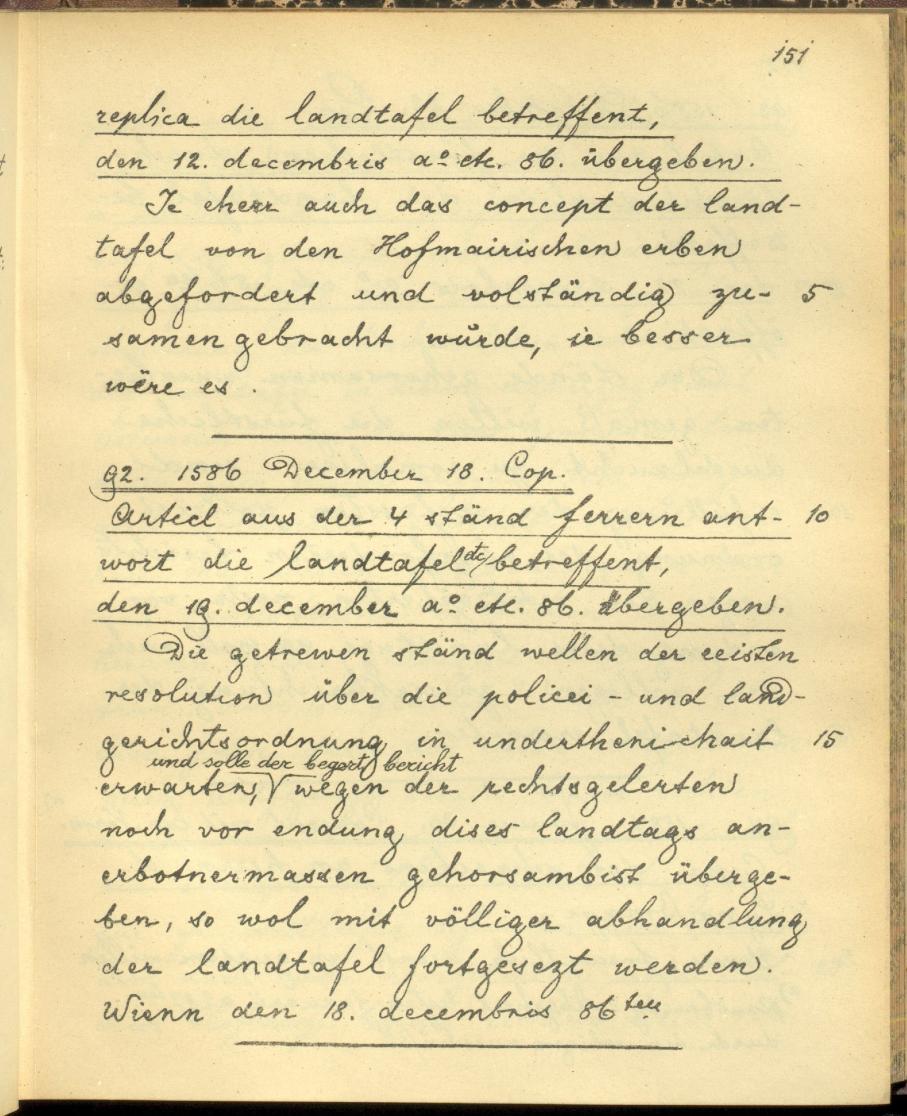 151
replica die landtafel betreffent,
den 12. decembris aº etc. 86. übergeben.
Je eherr auch das concept der land-
tafel von den Hofmairischen erben
abgefordert und volständig zu- 5
samengebracht würde, ie besser
wëre es.
92. 1586 December 18. Cop.
Articl aus der 4 ständ ferrern ant- 10
wort die landtafel etc betreffent,
den 19. december aº etc. 86. übergeben.
Die getrewen ständ wellen der
resolution über die policei- und land-
gerichtsordnung in underthenichait 15
und solle der begert bericht
erwarten, wegen der rechtsgelerten
noch vor endung dises landtags an-
erbotnermassen gehorsambist überge-
ben, so wol mit völliger abhandlung
der landtafel fortgesezt werden.
Wienn den 18. decembris 86ten